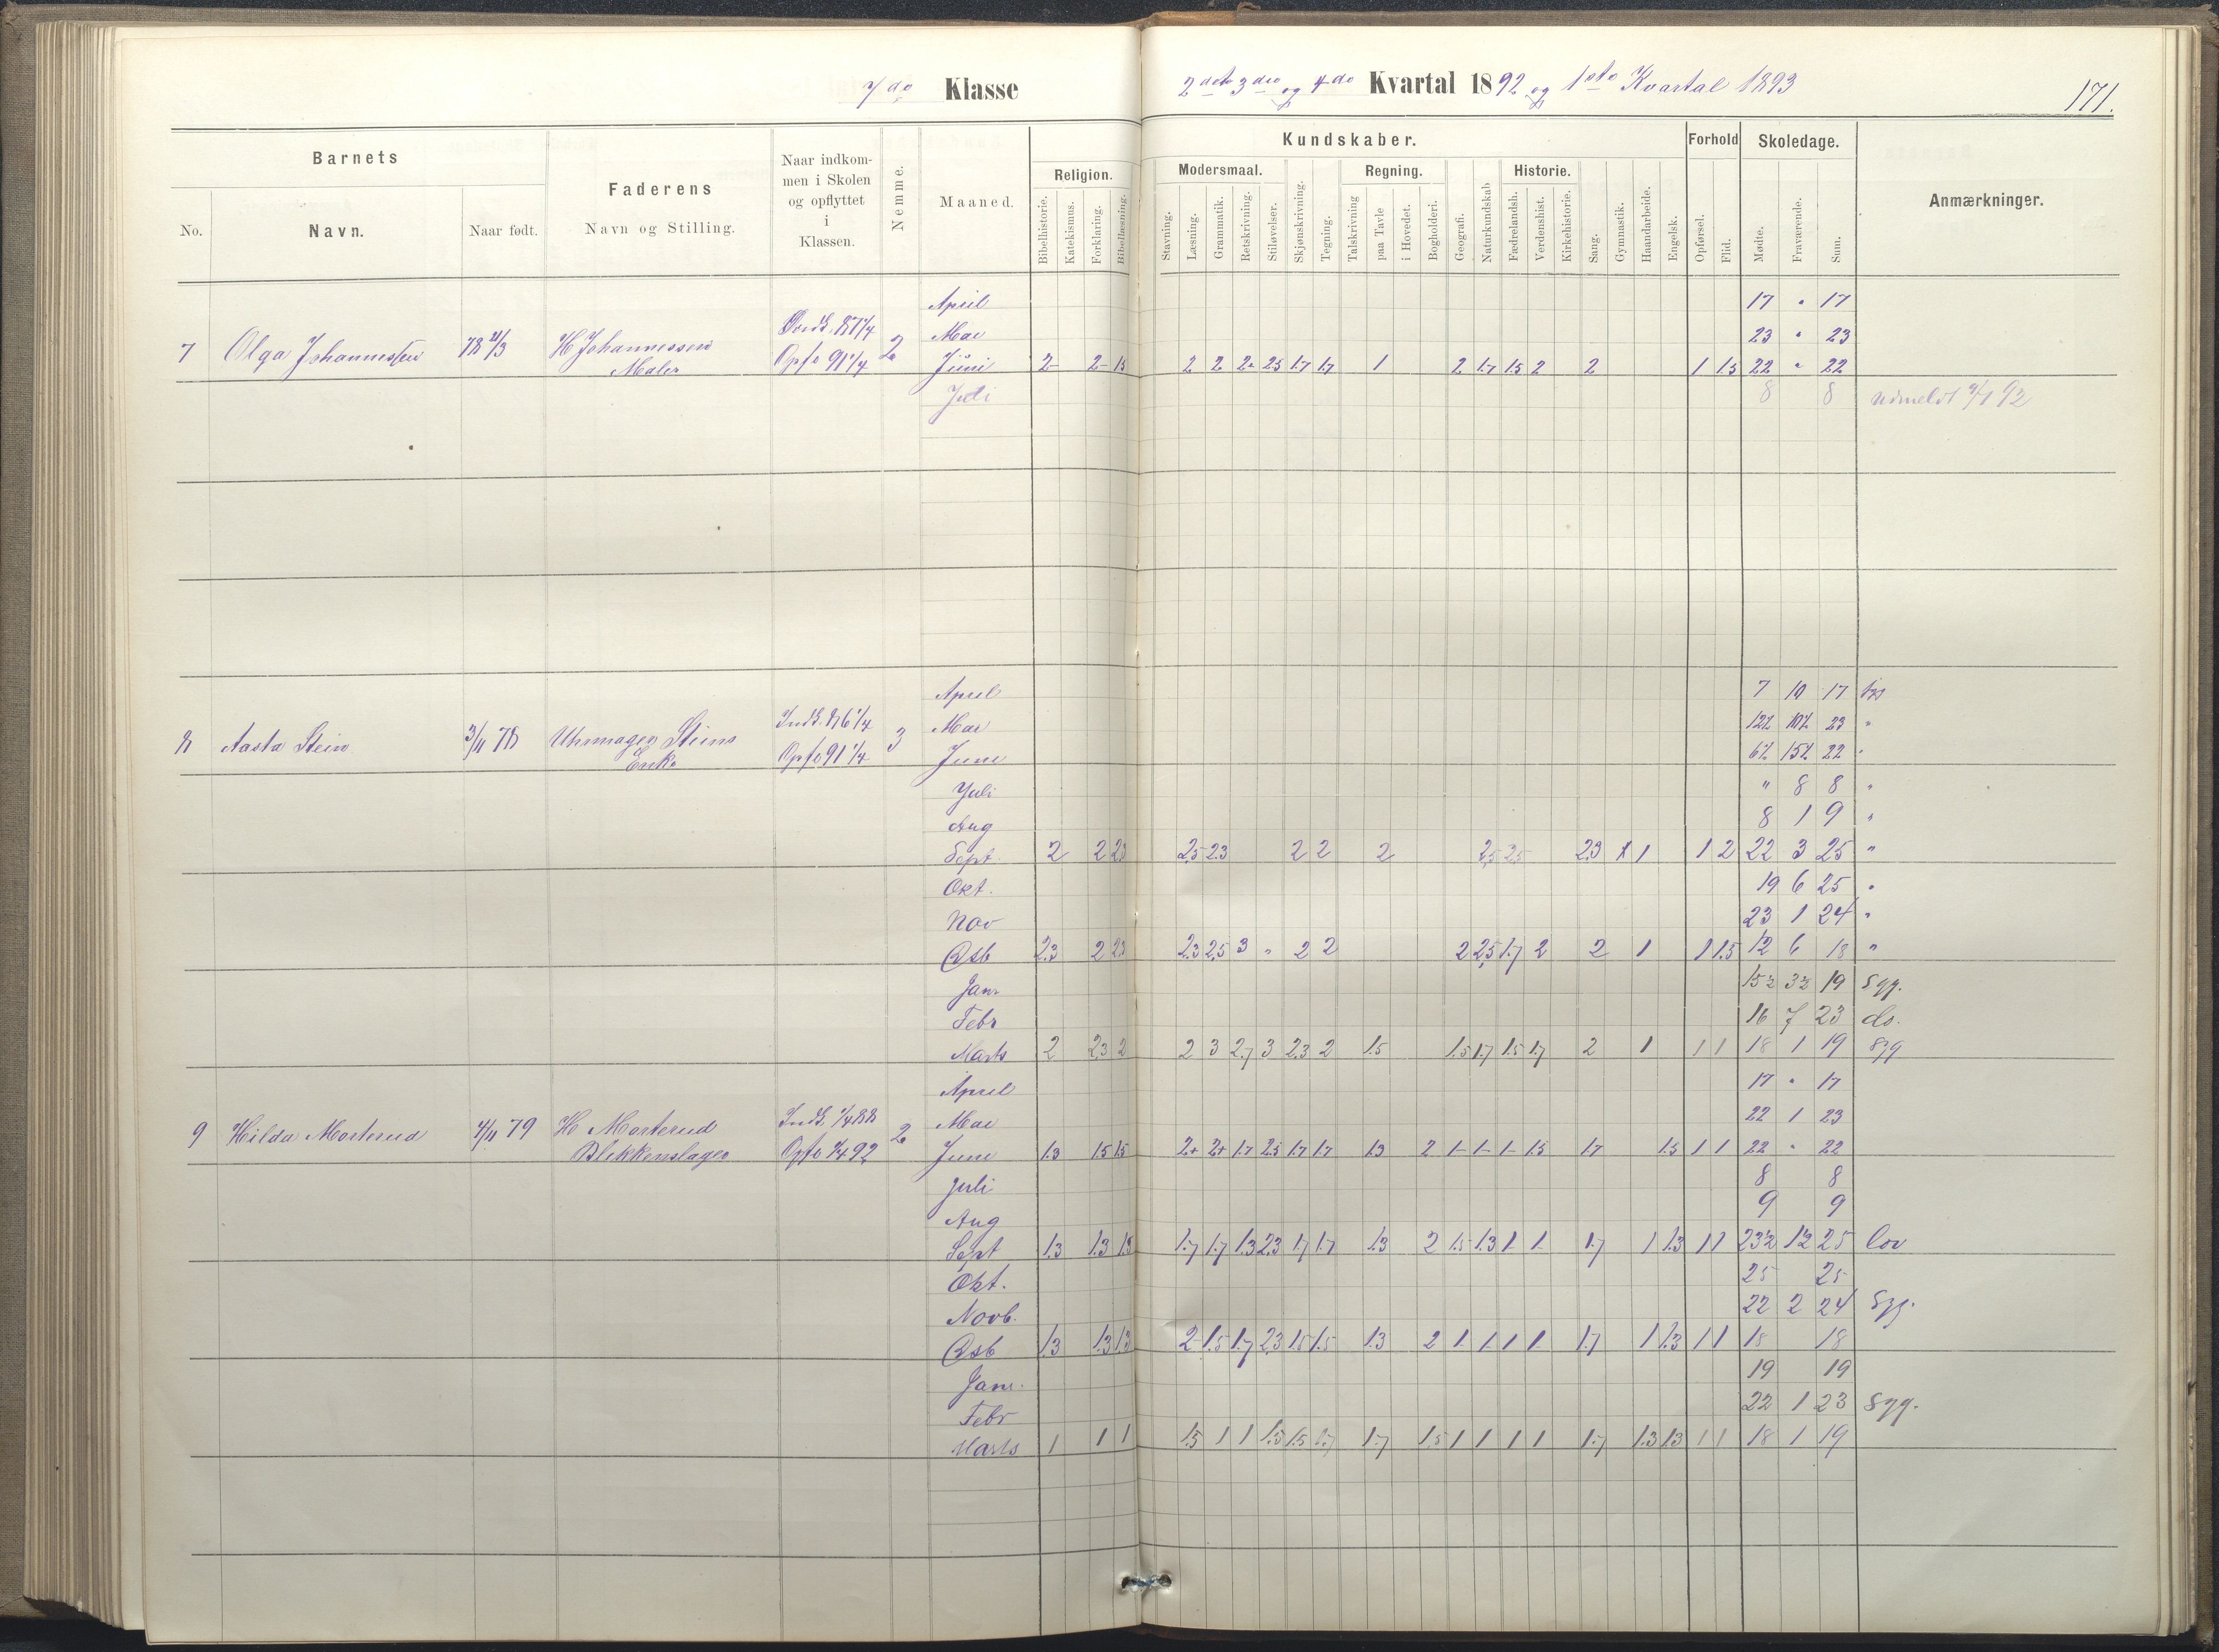 7de Klasse 2det 3die og 4de Kvartal 1892 og 1ste Kvartal 1893 171.
Barnets Faderens Naar indkommen i Skolen og opflyttet i Klassen. Nemme. Maaned. Religion. Kundskaber. Forhold Skoledage. Anmærkninger.
No. Navn. Naar født. Navn og Stilling.
Modersmaal. Regning. Historie.
Bibelhistorie. Katekismus. Forklaring. Bibellæsning. Stavning. Læsning. Grammatik. Retskrivning. Stiløvelser. Skjønskrivning. Tegning. Talskrivning paa Tavle i Hovedet. Bogholderi. Geografi. Naturkundskab Fædrelandsh. Verdenshist. Kirkehistorie. Sang. Gymnastik. Haandarbeide. Engelsk. Opførsel. Flid. Mødte. Fraværende. Sum.
April 17 " 17
Mai 23 " 23
7 Olga Johannessen H Johannessen Maler Opfl 91 1/4 2 Juni 2- 2- 1.5 2 2 2- 2.5 1.7 1.7 1 2 1.7 1.5 2 2 1 1.5 22 " 22
Juli 8 8 Udmeldt
April 7 10 17
Mai 12½ 10½ 23 "
8 Aasta Stein 3/11 78 Uhrmager Steins Enke Indk. 86 1/4 Opfl 91 1/4 3 Juni 6½ 15½ 22 "
Juli " 8 8 "
Aug 8 1 9 "
Sept. 2 2 2.3 2,5 2.3 2 2 2 2,5 2,5 2.3 1 1 2 22 3 25 "
Okt. 19 6 25 "
Nov 23 1 24 "
Dsb 2.3 2 2.3 2.3 2,5 3 " 2 2 2 2,5 1.7 2 2 1 1 1.5 12 6 18 "
Jan. 15½ 3½ 19 Syg.
Febr 16 7 23 do.
Marts 2 2.3 2 2 3 2.7 3 2.3 2 1.5 1.5 1.7 1.5 1.7 2 1 1 1 18 1 19 Syg
April 17 " 17
Mai 22 1 23
9 Hilda Morterud 4/11 79 H Morterud Blikkenslager Indk 1/4 88 Opfl 1/4 92 2 Juni 1.3 1.5 1.5 2+ 2+ 1.7 2.5 1.7 1.7 1.3 2 1- 1- 1- 1.5 1.7 1.5 1 1 22 " 22
Juli 8 8
Aug 9 9
Sept 1.3 1.3 1.3 1.7 1.7 1.3 2.3 1.7 1.7 1.3 2 1.5 1.3 1 1 1.7 1 1.3 1 1 23½ 1½ 25 lov
Okt. 25 25
Novb. 22 2 24 Syg.
Dsb 1.3 1.3 1.3 2- 1.5 1.7 2.3 1.5 1.5 1.3 2 1 1 1 1 1.7 1 1.3 1 1 18 18
Janr. 19 19
Febr 22 1 23 Syg.
Marts 1 1 1 1.5 1 1 1.5 1.5 1.7 1.7 1.5 1 1 1 1 1.7 1.3 1.3 1 1 18 1 19